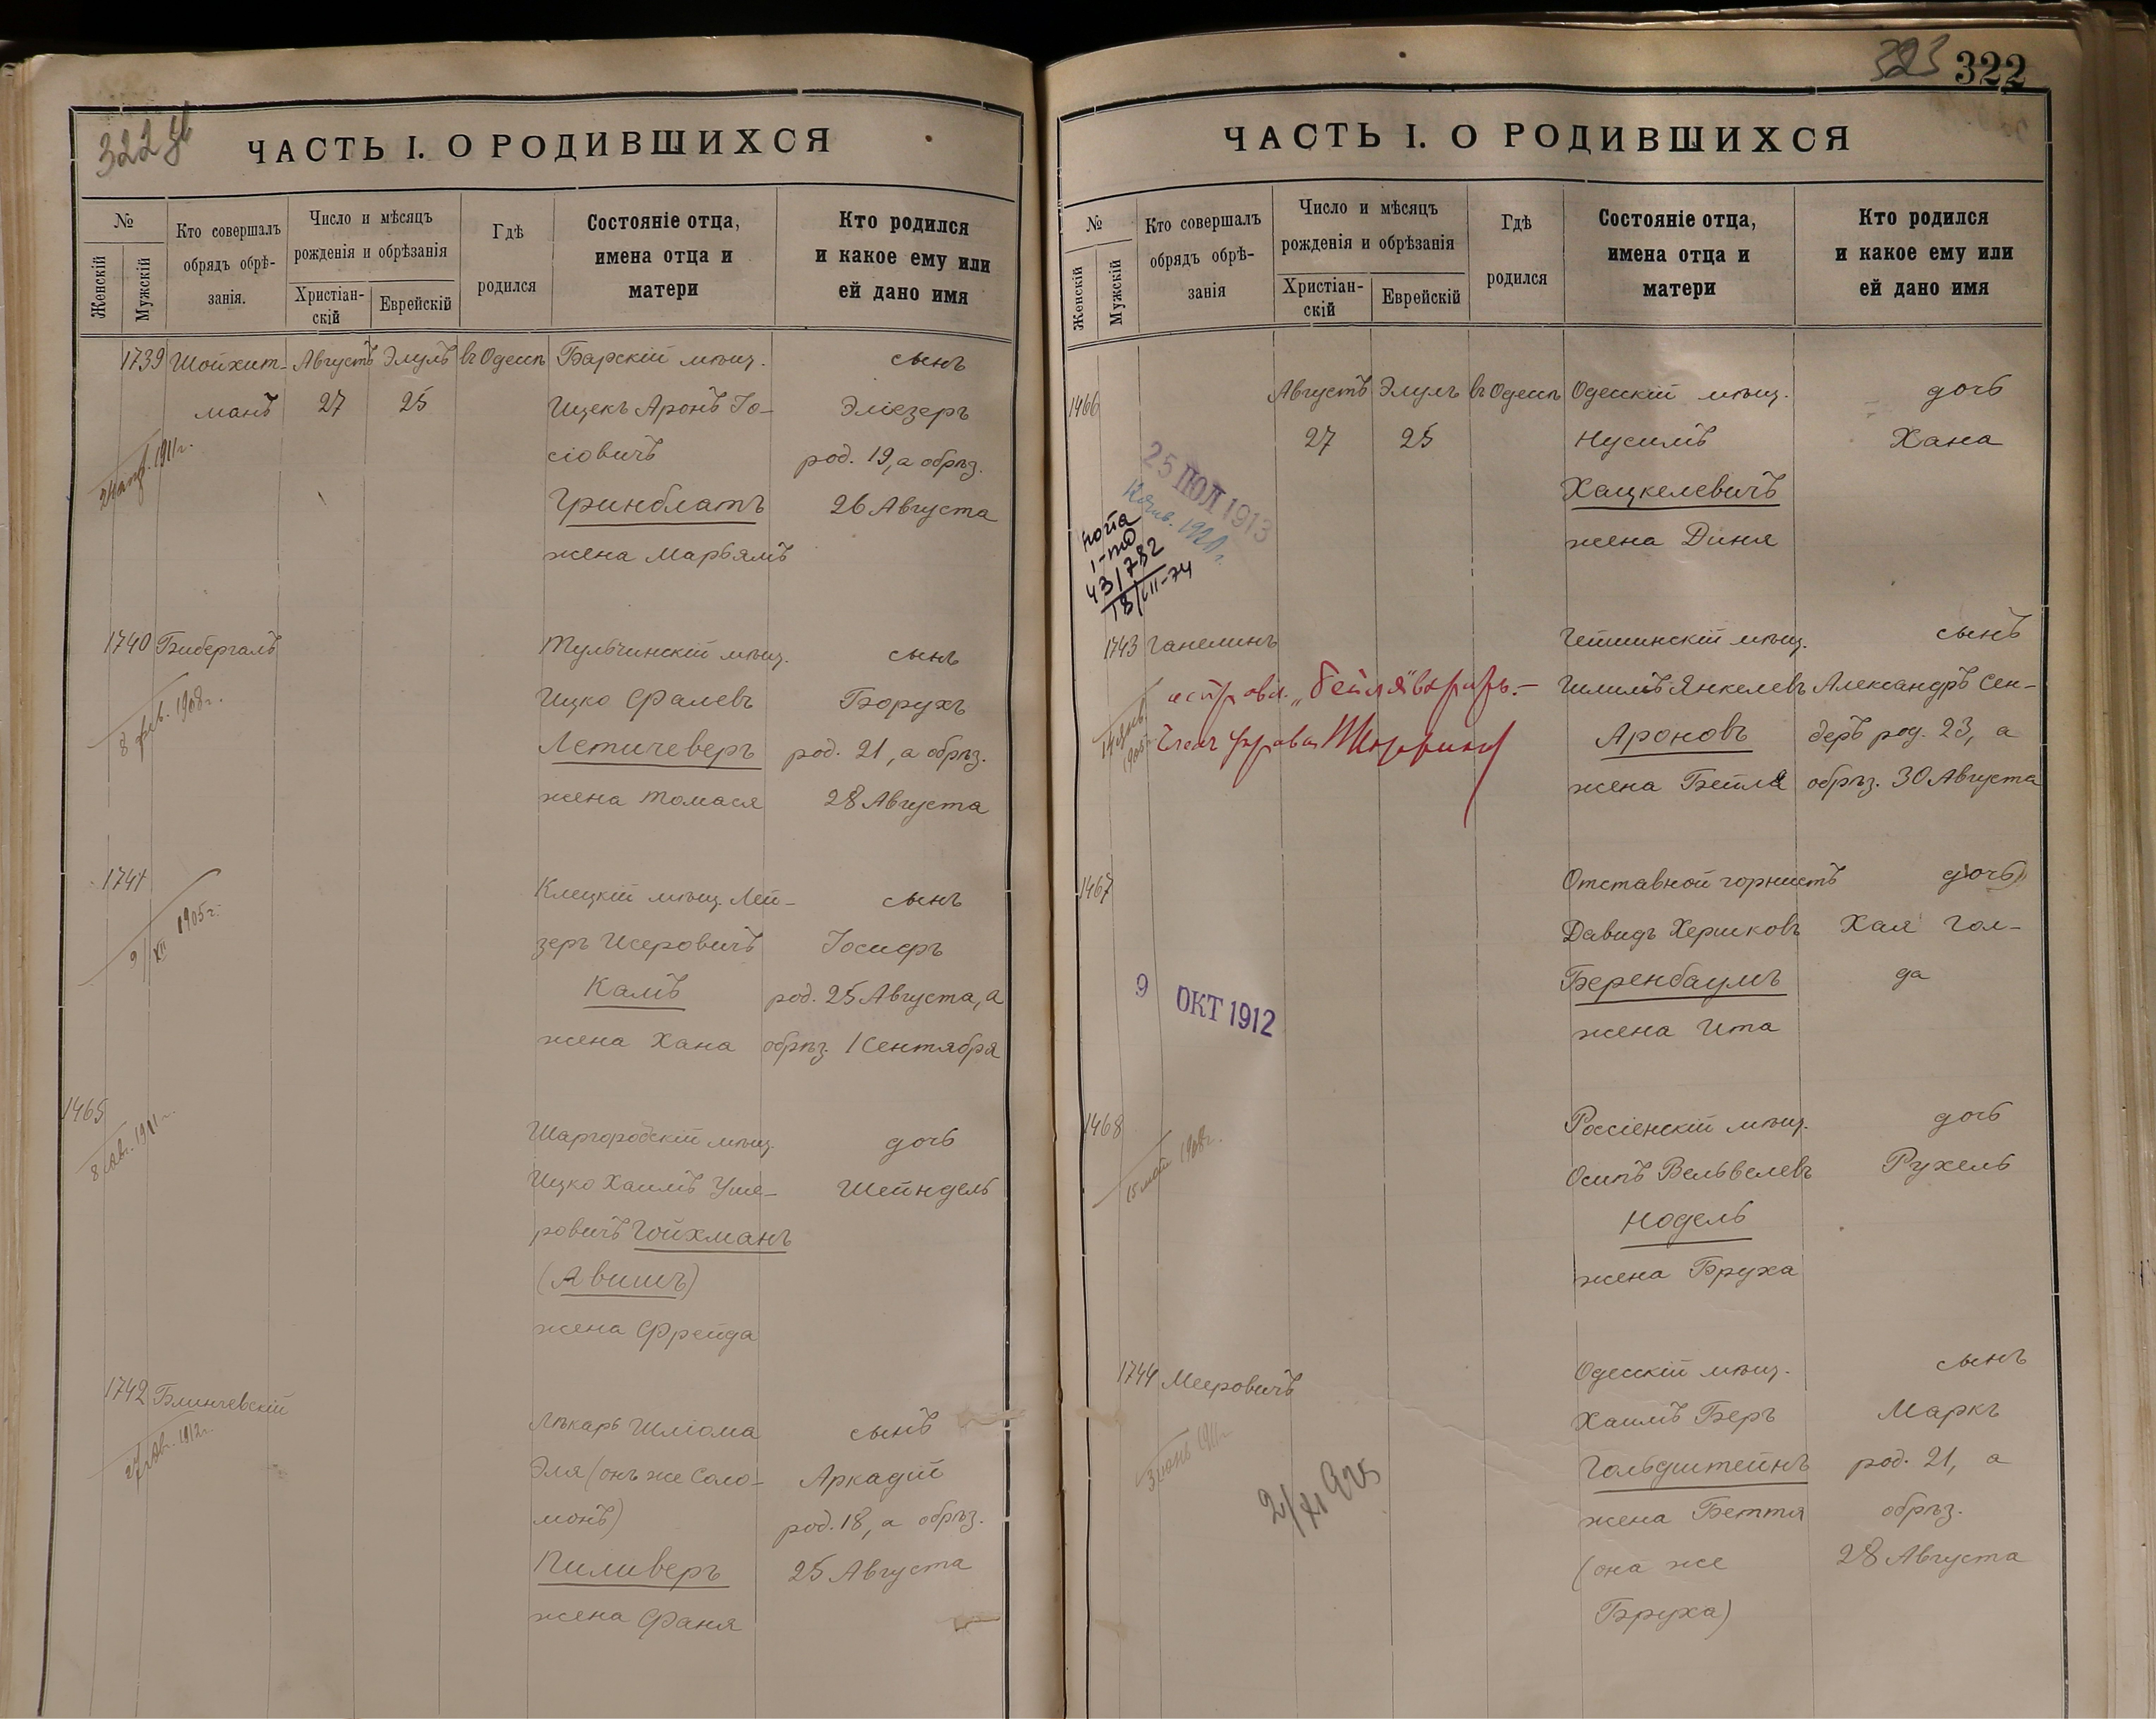 322 об
ЧАСТЬ I. О РОДИВШИХСЯ
№
Женскій
Мужскій
Кто совершалъ
обрядъ обрѣ-
занія.
Число и мѣсяцъ
рожденія и обрѣзанія
Христіан-
скій
Еврейскій
Гдѣ
родился
Состояніе отца,
имена отца и
матери
Кто родился
и какое ему или
ей дано имя
1739 Шойхит- Августъ Элулъ въ Одессѣ Барскій мѣщ. сынъ
манъ 27 25 Ицекъ Аронъ Іо- Эліезеръ
сіовичъ род. 19, а обрѣз.
Гринблатъ 26 Августа
жена Марьямъ
1911 г.
1740 Бибергалъ Тульчинскій мѣщ. сынъ
Ицко Фалевъ Борухъ
Летичеверъ род. 21, а обрѣз.
жена Томася 28 Августа
8 фев. 1908 г.
1741 Клецкій мѣщ. Лей- сынъ
зеръ Исеровичъ Іосифъ
Камъ род. 25 Августа, а
жена Хана обрѣз. 1 Сентября
9/XII 1905 г.
1465 Шаргородскій мѣщ. дочь
Ицко Хаимъ Уше- Шейндель
ровичъ Гойхманъ
(Авишъ)
жена Фрейда
8 Авг. 1911 г.
1742 Блинчевскій Лѣкарь Шліома сынъ
Эля (онъ же Соло- Аркадій
монъ) род. 18, а обрѣз.
Пиливеръ 25 Августа
жена Фаня
27 Авг. 1912 г.
323 322
ЧАСТЬ I. О РОДИВШИХСЯ
№
Женскій
Мужскій
Кто совершалъ
обрядъ обрѣ-
занія
Число и мѣсяцъ
рожденія и обрѣзанія
Христіан-
скій
Еврейскій
Гдѣ
родился
Состояніе отца,
имена отца и
матери
Кто родился
и какое ему или
ей дано имя
1466 Августъ Элулъ въ Одессѣ Одесскій мѣщ. дочь
27 25 Нусимъ Хана
Хацкелевичъ
жена Диня
25 ІЮЛ 1913
1921 г.
43/782
18/VII-74
1743 Ганелинъ Чейшинскій мѣщ. сынъ
Шмилъ Янкелевъ Александръ Сен-
Ароновъ деръ род. 23, а
жена Бейла обрѣз. 30 Августа
"Бейля"
1467 Отставной горнистъ дочь
Давидъ Хершковъ Хая Гол-
Беренбаумъ да
жена Ита
9 ОКТ 1912
1468 Россіенскій мѣщ. дочь
Осипъ Вельвелевъ Рухель
Нодель
жена Бруха
15 май 1908 г.
1744 Мееровичъ Одесскій мѣщ. сынъ
Хаимъ Беръ Маркъ
Гольдштейнъ род. 21, а
жена Бетти обрѣз.
(она же 28 Августа
Бруха)
3 іюнь 1911 г.
2/XI 925